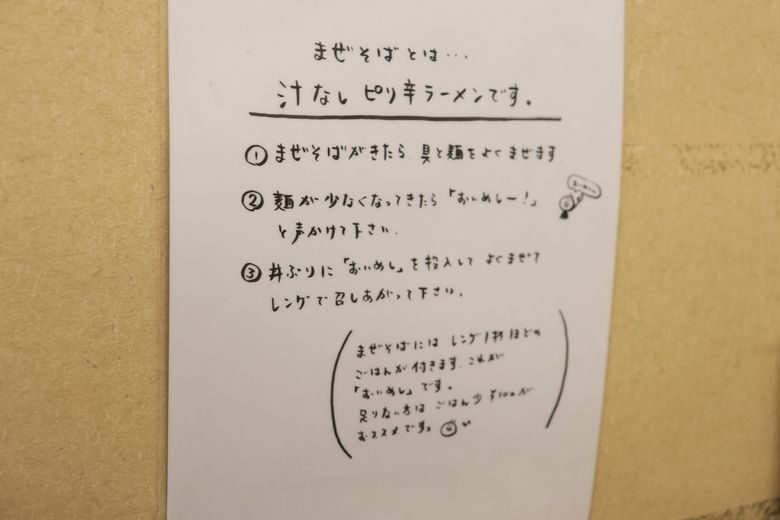 まぜそばとは…
汁なしピリ辛ラーメンです。
① まぜそばがきたら、具と麺をよくまぜます
② 麺が少なくなってきたら「おいめしー!」
と声かけて下さい.
③ 丼ぶりに「おいめし」を投入してよくまぜて
レンゲで召しあがって下さい。
まぜそばには レンゲ1杯ほどの
ごはんが付きます。これが
「おいめし」です。
足りない方は ごはん少 ¥100が
おススメです。